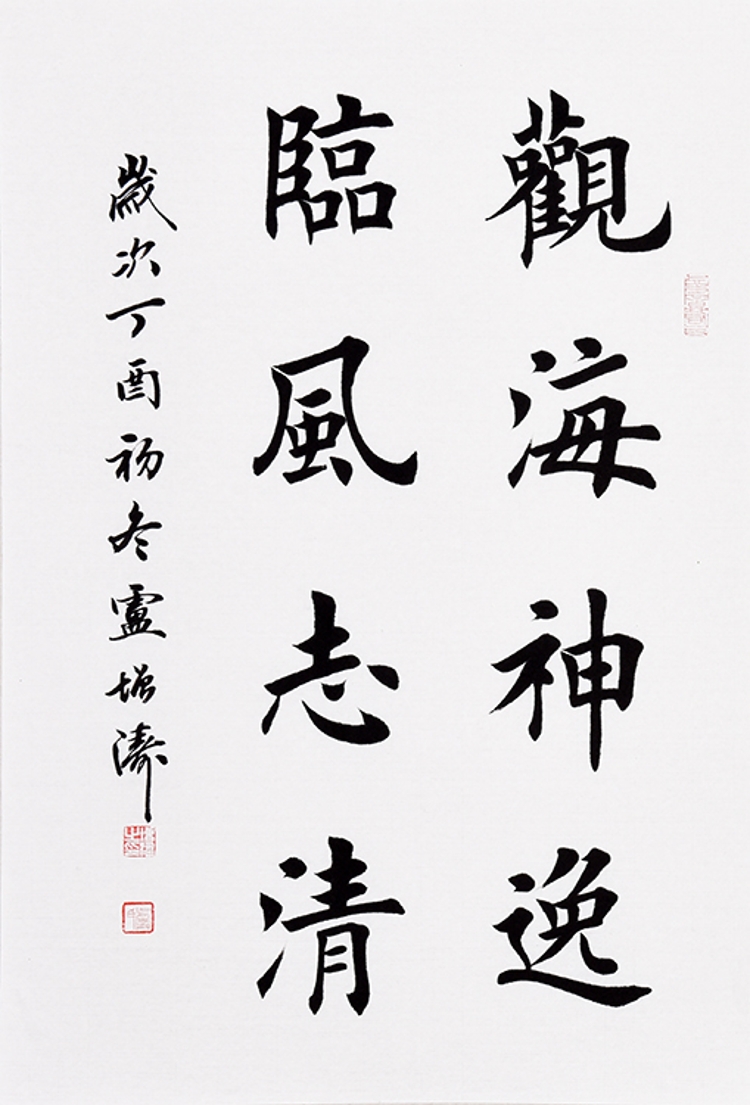 觀海神逸
臨風志清
歲次丁酉初冬盧增濤